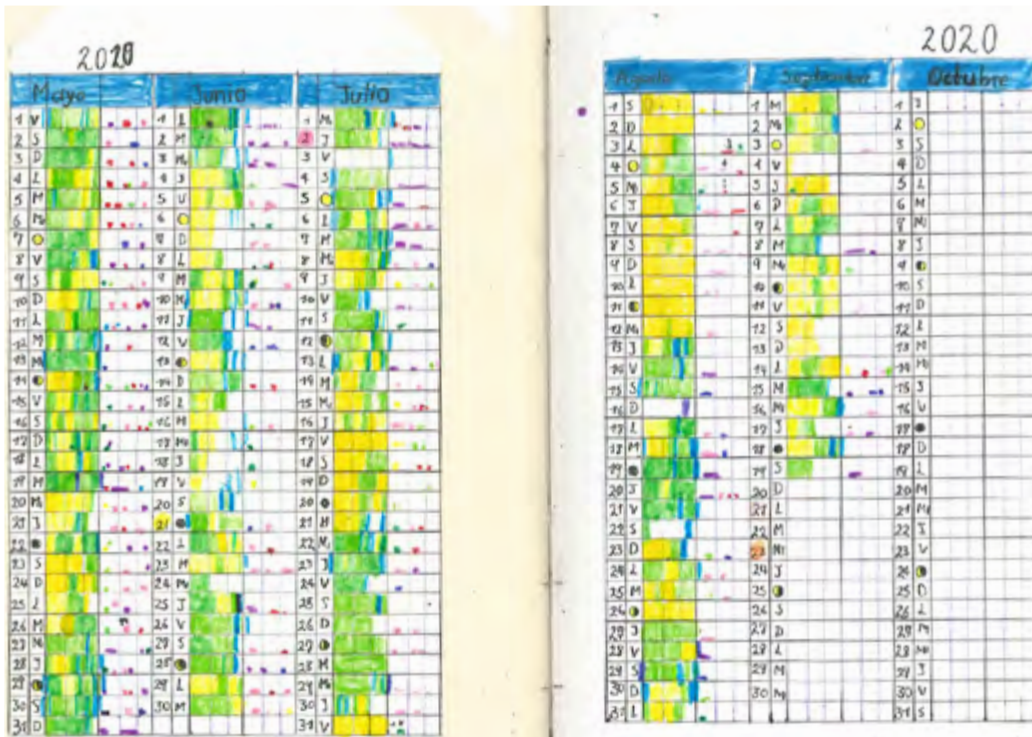 2020
Mayo
1 V
2 S
3 D
4 L
5 M
6 Mi
7
8 V
9 S
10 D
11 L
12 M
13 Mi
14
15 V
16 S
17 D
18 L
19 M
20 Mi
21 J
22
23 S
24 D
25 L
26 M
27 Mi
28 J
29
30 S
31 D
Junio
1 L
2 M
3 Mi
4 J
5 V
6
7 D
8 L
9 M
10 Mi
11 J
12 V
13
14 D
15 L
16 M
17 Mi
18 J
19 V
20 S
21
22 L
23 M
24 Mi
25 J
26 V
27 S
28
29 L
30 M
Julio
1 Mi
2 J
3 V
4 S
5
6 L
7 M
8 Mi
9 J
10 V
11 S
12
13 L
14 M
15 Mi
16 J
17 V
18 S
19 D
20
21 M
22 Mi
23 J
24 V
25 S
26 D
27
28 M
29 Mi
30 J
31 V
2020
Agosto
1 S
2 D
3 L
4
5 Mi
6 J
7 V
8 S
9 D
10 L
11
12 Mi
13 J
14 V
15 S
16 D
17 L
18 M
19
20 J
21 V
22 S
23 D
24 L
25 M
26
27 J
28 V
29 S
30 D
31 L
Septiembre
1 M
2 Mi
3
4 V
5 S
6 D
7 L
8 M
9 Mi
10
11 V
12 S
13 D
14 L
15 M
16 Mi
17 J
18
19 S
20 D
21 L
22 M
23 Mi
24 J
25
26 S
27 D
28 L
29 M
30 Mi
Octubre
1 J
2
3 S
4 D
5 L
6 M
7 Mi
8 J
9
10 S
11 D
12 L
13 M
14 Mi
15 J
16 V
17
18 D
19 L
20 M
21 Mi
22 J
23 V
24
25 D
26 L
27 M
28 Mi
29 J
30 V
31 S